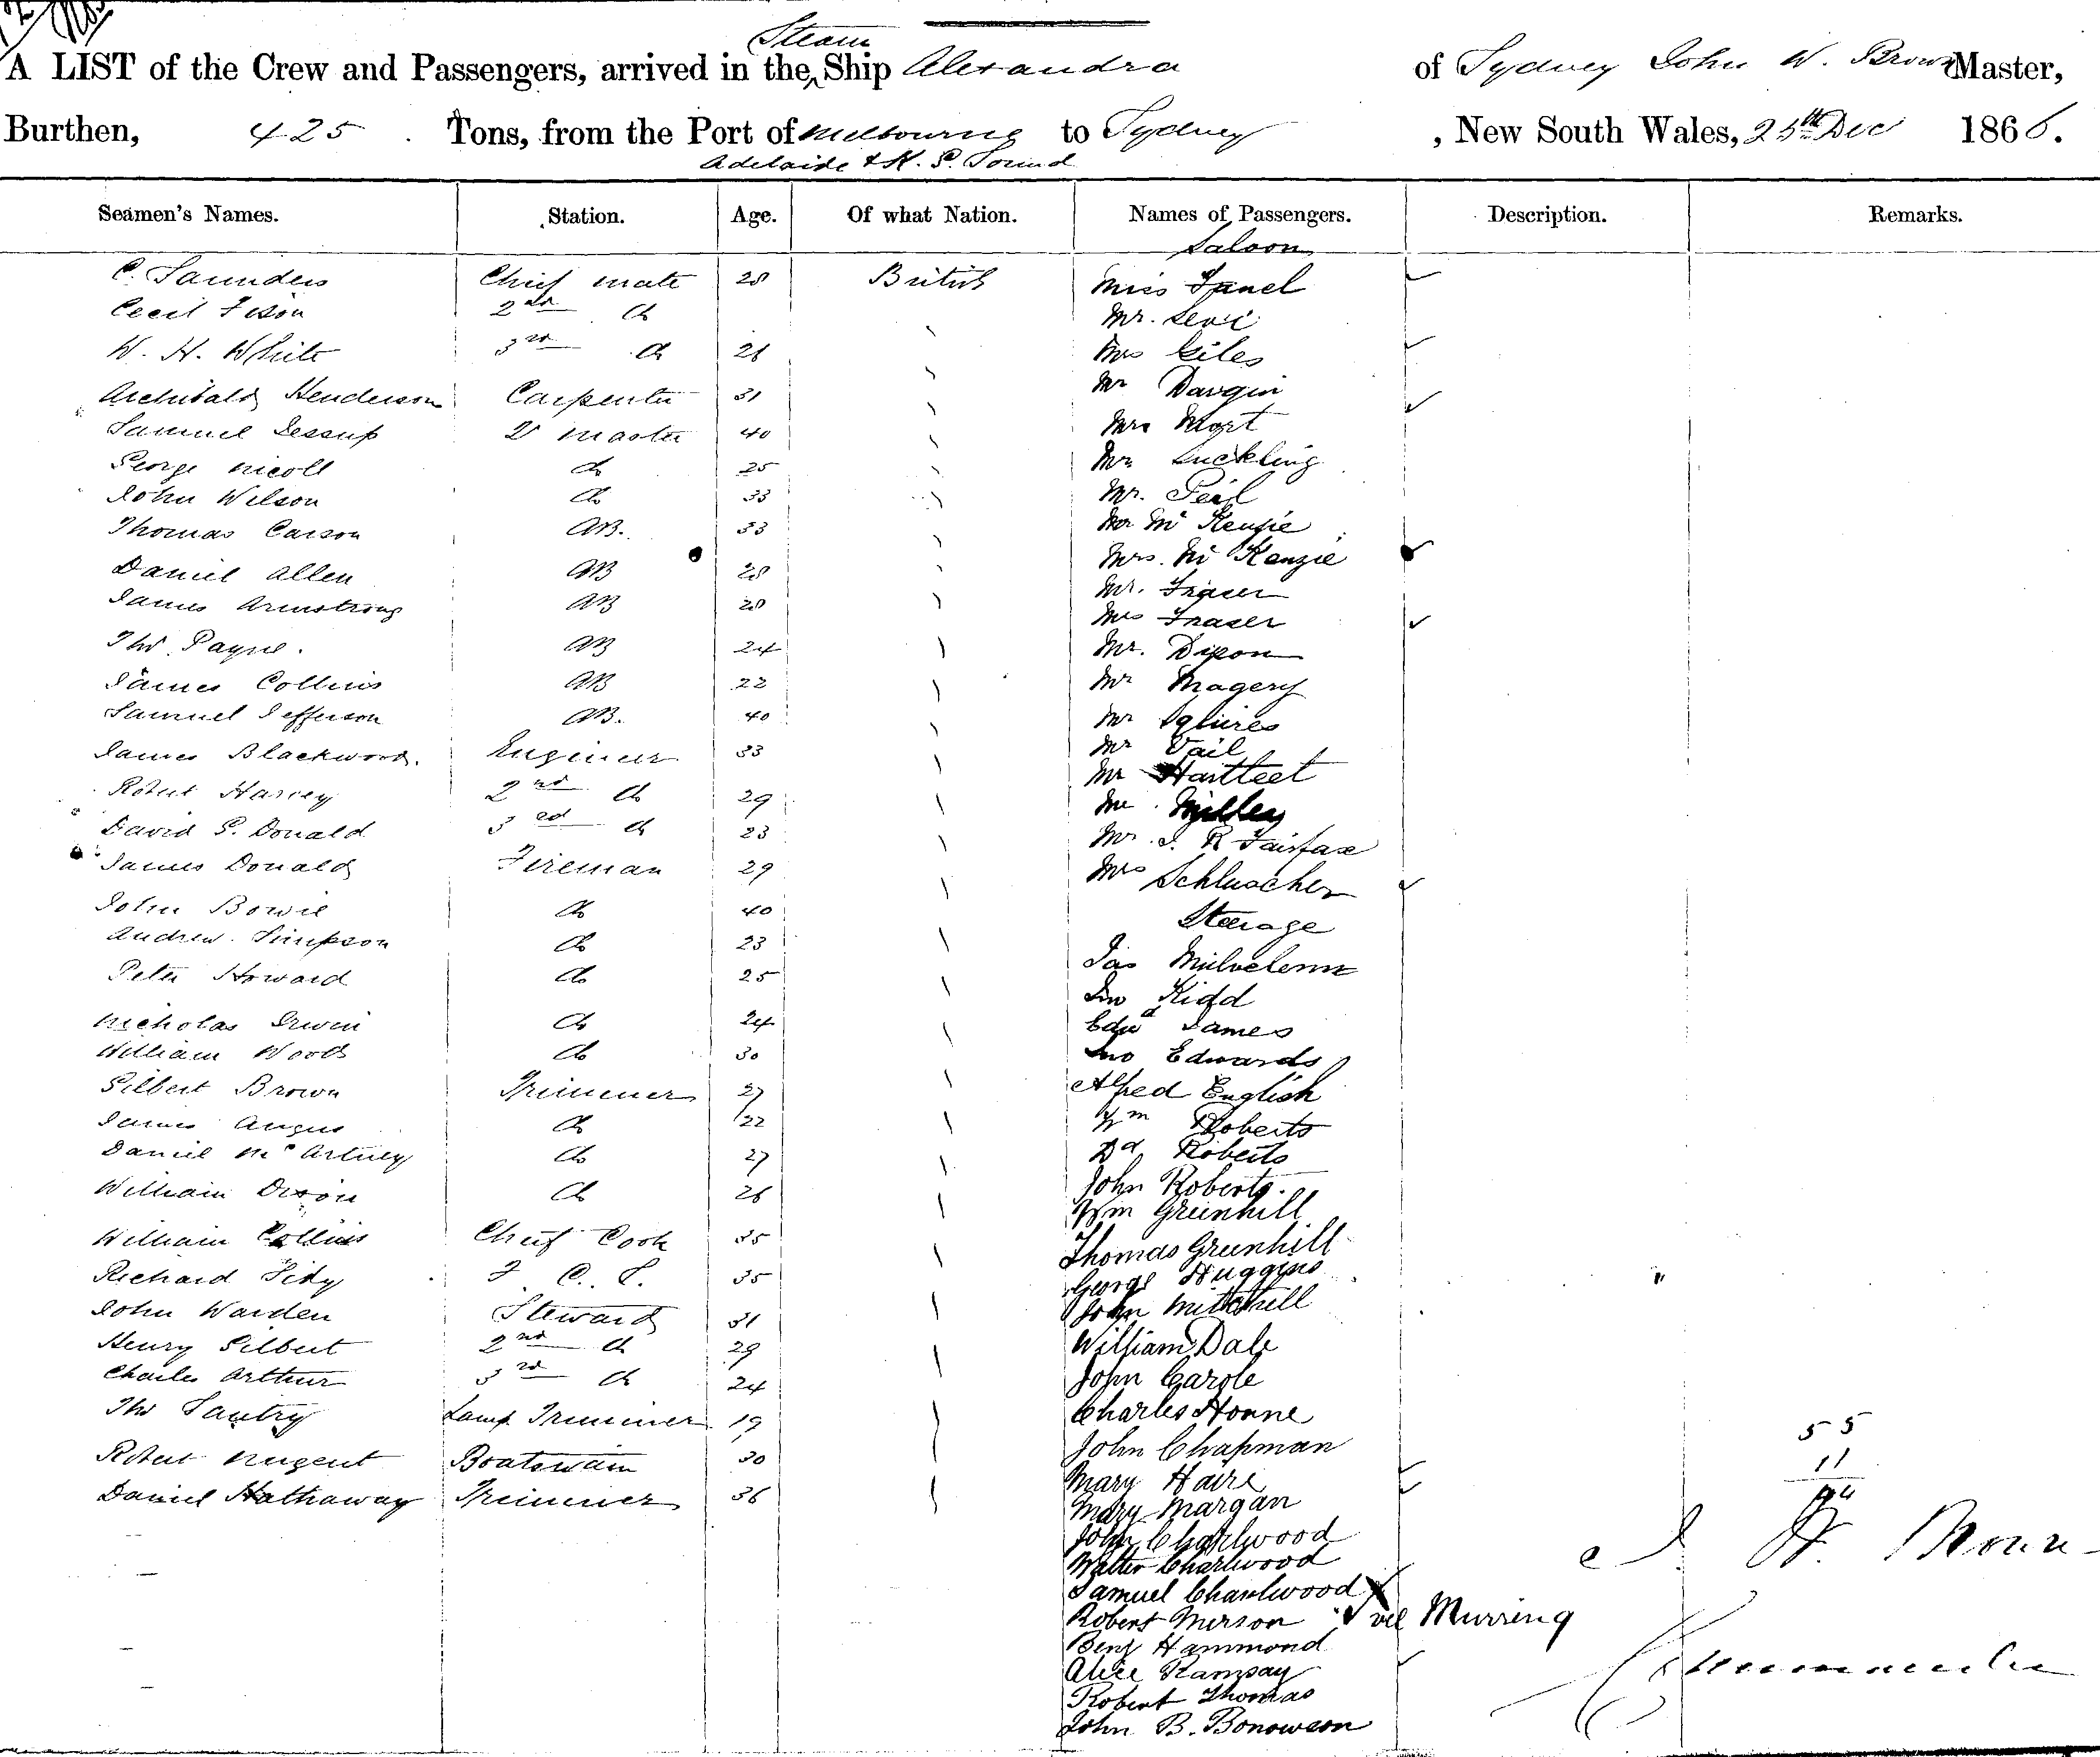 Steam
A LIST of the Crew and Passengers, arrived in the Ship Alexandra of Sydney John W. Brown Master,
Burthen, 425 Tons, from the Port of Melbourne to Sydney, New South Wales, 25th Dec 1866.
Adelaide & K. G. Sound
Seamen's Names. Station. Age. Of what Nation. Names of Passengers. Description. Remarks.
Saloon
C. Saunders Chief mate 28 British Miss
Cecil 2nd do Mr. Levi
W. H. White 3rd do 26 Mrs Giles
Archibald Henderson Carpenter 31 Mr Dargin
Samuel Jessup Qr master 40 Mrs Mort
George Nicoll do 25 Mr Suckling
John Wilson do 33 Mr.
Thomas Carson AB. 33 Mr Mc Kenzie
Mrs. Mc Kenzie
Daniel Allen AB 28 Mr. Fraser
James Armstrong AB 28 Mrs Fraser
Thos Payne. AB 24 Mr. Dixon
James Collins AB 22 Mr Magery
Samuel Jefferson AB. 40 Mr Squires
James Blackwood. Engineer 33 Mr Vail
Mr Hartleet
Robert Harvey 2nd do 29 Mr.
David G. Donald 3rd do 23 Mr. J. R Fairfax
James Donald Fireman 29 Mrs
John Bowie do 40 Steerage
Andrew Simpson do 23 Jas
Peter Howard do 25 Jno Kidd
Nicholas Irwin do 24 Edwd James
William Woods do 30 Jno Edwards
Gilbert Brown Trimmer 27 Alfred English
James Angus do 22 Wm Roberts
Daniel McArtney do 27 Dd Roberts
William Dixon do 26 John Roberts.
Wm Greenhill
William Collins Chief Cook 35 Thomas Greenhill
Richard 35 George Huggins
John Warden Steward 31 John Mitchell
Henry Gilbert 2nd do 29 William Dale
Charles Arthur 3rd do 24 John Carole
Thos Santry Lamp Trimmer 19 Charles Honne
John Chapman 55
Robert Nugent Boatswain 30 Mary Haire 11
Daniel Hathaway Trimmer 36 Mary Margan
John Charlwood
Walter Charlwood
Samuel Charlwood
Robert Merson vel Murring
Benj Hammond
Alice Ramsay
Robert Thomas
John B. Bonowson
J W. Brown
Commander